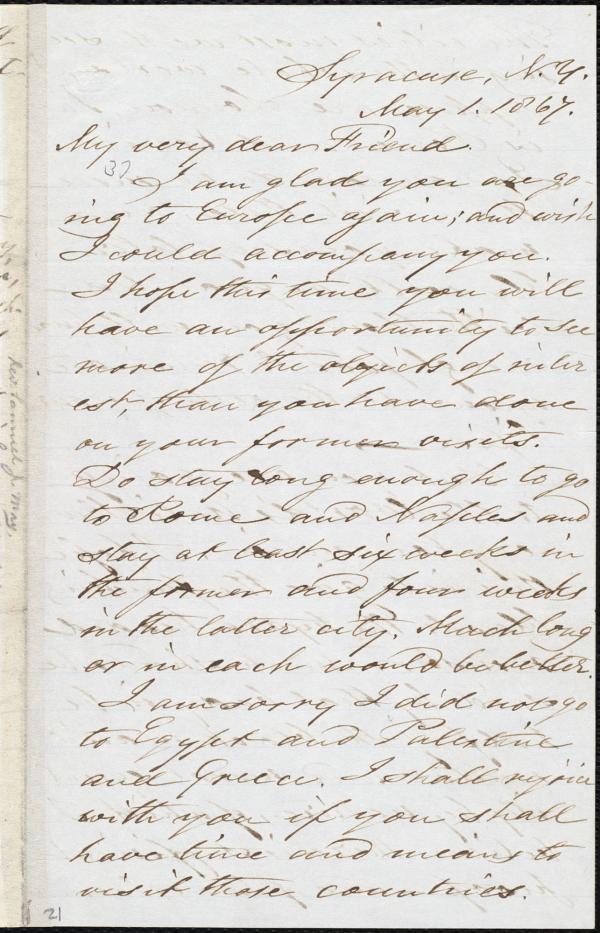 Syracuse, N.Y.
May 1. 1867.
My very dear Friend.
I am glad you are go-
ing to Europe again; and wish
I could accompany you.
I hope this time you will
have an opportunity to see
more of the objects of inter
est, than you have done
on your former visits.
Do stay long enough to go
to Rome and Naples and
stay at least six weeks in
the former and four weeks
in the latter city. Much long
er in each would be better.
I am sorry I did not go
to Egypt and Palestine
and Greece. I shall rejoice
with you if you shall
have time and means to
visit those countries.
21